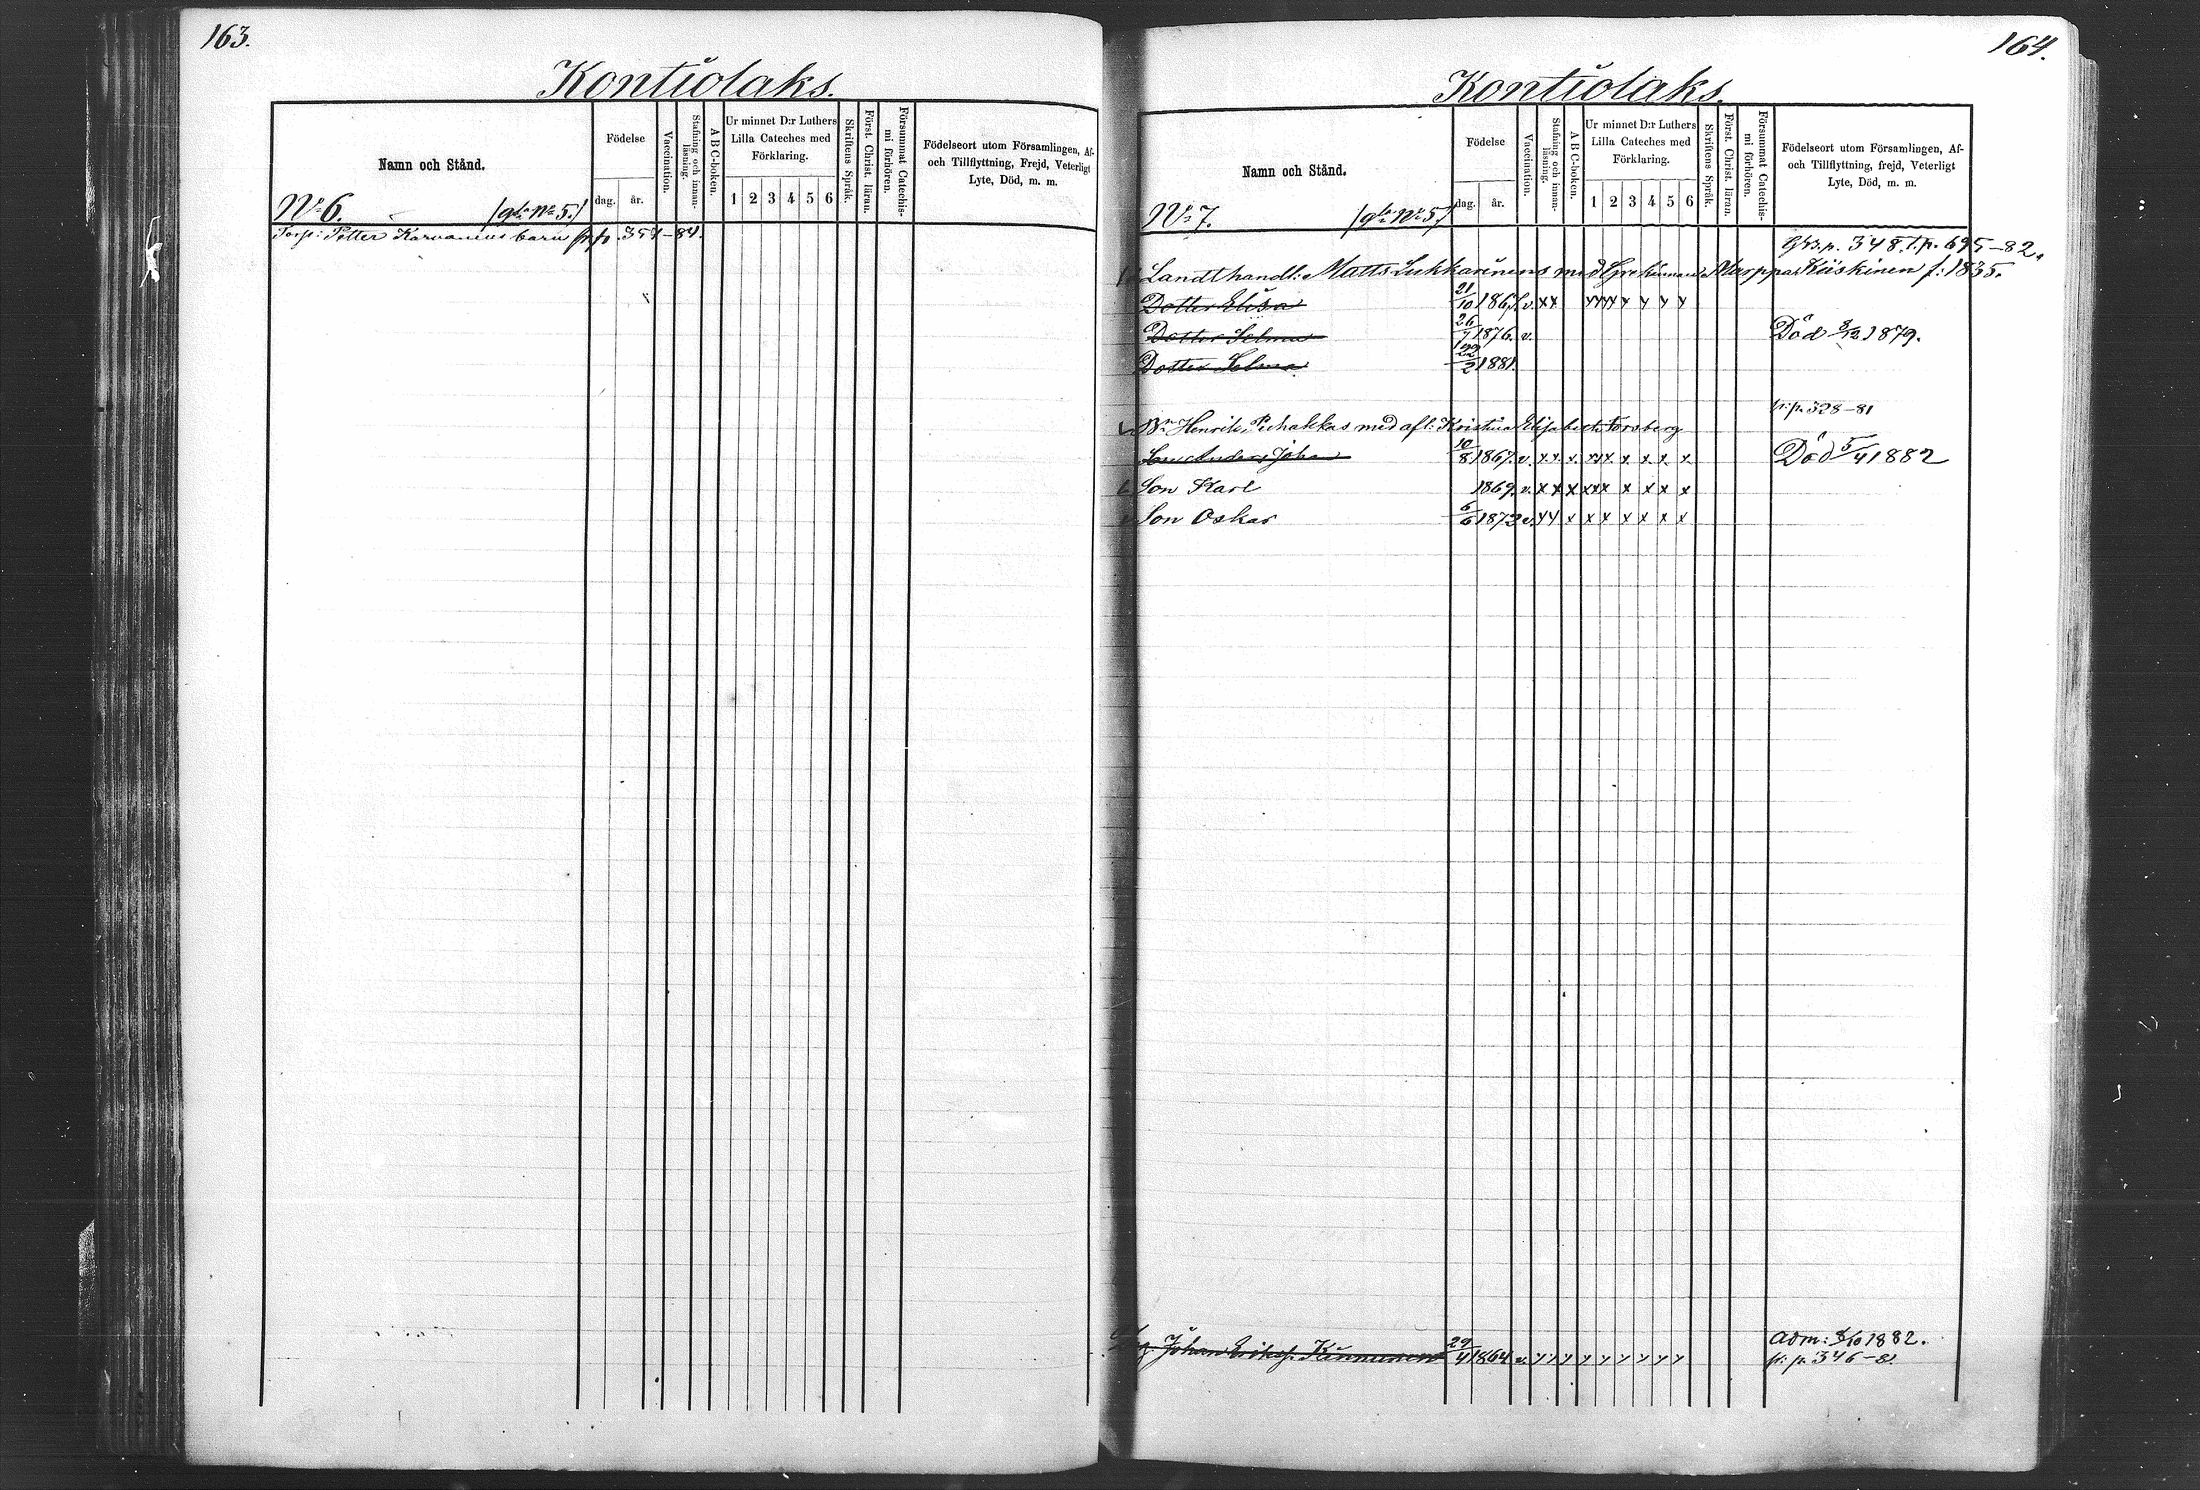 163.
Kontiolaks.
Namn och Stånd.
Födelse
dag. år.
Vaccination.
Stafning och innan-
läsning.
A B C-boken.
Ur minnet D:r Luthers
Lilla Cateches med
Förklaring.
1 2 3 4 5 6
Skriftens Språk.
Först. Christ. läran.
Försummat Catechis-
mi förhören.
Födelseort utom Församlingen, Af-
och Tillflyttning, Frejd, Veterligt
Lyte, Död, m. m.
No 6. /gla No 5./
Torp: Petter Karvanens barn fr. p. 354-84.
164.
Kontiolaks.
Namn och Stånd.
Födelse
dag. år.
Vaccination.
Stafning och innan-
läsning.
A B C-boken.
Ur minnet D:r Luthers
Lilla Cateches med
Förklaring.
1 2 3 4 5 6
Skriftens Språk.
Först. Christ. läran.
Försummat Catechis-
mi förhören.
Födelseort utom Församlingen, Af-
och Tillflyttning, frejd, Veterligt
Lyte, Död, m. m.
No 7. /gla No 5/
p. 348. T. p. 695-82.
Landthandl: Matts Sukkarinens med Kiiskinen f: 1835.
Dotter Elisa 21/10 1867. v. x x x x x x x x x x
Dotter Selma 26/7 1876. v. Död 8/12 1879.
Dotter Selma 22/2 1881.
fr: p. 328-81
Bn Henrik Pehakkas med afl: Kristina Elisabeth Forsberg
Son Anders Johan 10/8 1867. v. x x x. x x x. x x. x. x. Död 5/4 1882
Son Karl 1869. v. x x x x x x x x x x
Son Oskar 6/6 1873 v. x x x x x x x x x
Johan Eriksf. Kinnunen 29/4 1864 v. x x x x x x x x x adm: 8/10 1882.
fr: p. 346-81.